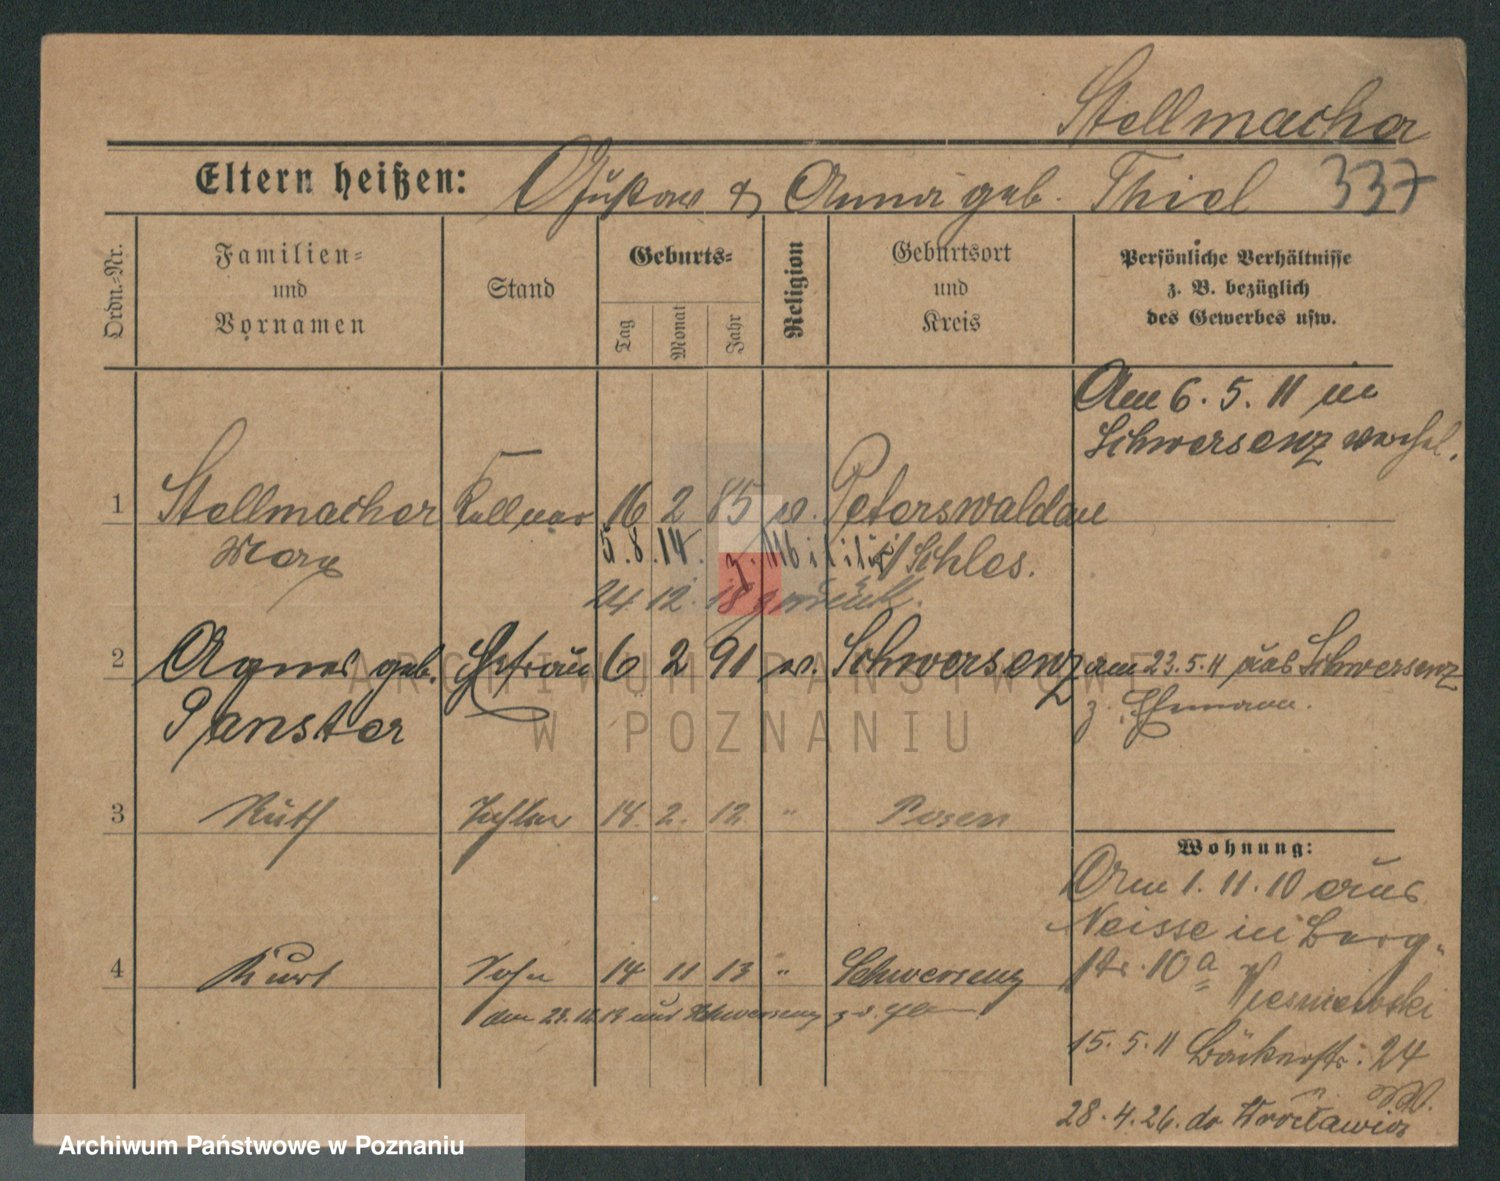 Stellmacher
Eltern heißen: Gustav & Anna geb. Thiel 337
Ordn.=Nr.
Familien=
und
Vornamen
Stand
Geburts=
Tag
Monat
Jahr
Religion
Geburtsort
und
Kreis
Persönliche Verhältnisse
z. B. bezüglich
des Gewerbes usw.
Am 6. 5. 11 in
Schwersenz verehel.
1 Stellmacher Kellner 16 2 85 ev. Peterswaldau
Max
5. 8. 14. z. Militär
/Schles.
24 12. 18 zurück.
2 Agnes geb. Ehefrau 6 2 91 ev. Schwersenz am 23. 5. 11 aus Schwersenz
Panster
z. Ehemann.
3 Ruth Tochter 14. 2. 12 " Posen
Wohnung:
Am 1. 11. 10 aus
Neisse in Berg-
str. 10a
4 Kurt Sohn 14 11 13 " Schwersenz
Wesniewski
15. 5. 11 Bäckerstr. 24
28. 4. 26. do Wrocławia
ARCHIWUM PAŃSTWOWE
W POZNANIU
Archiwum Państwowe w Poznaniu